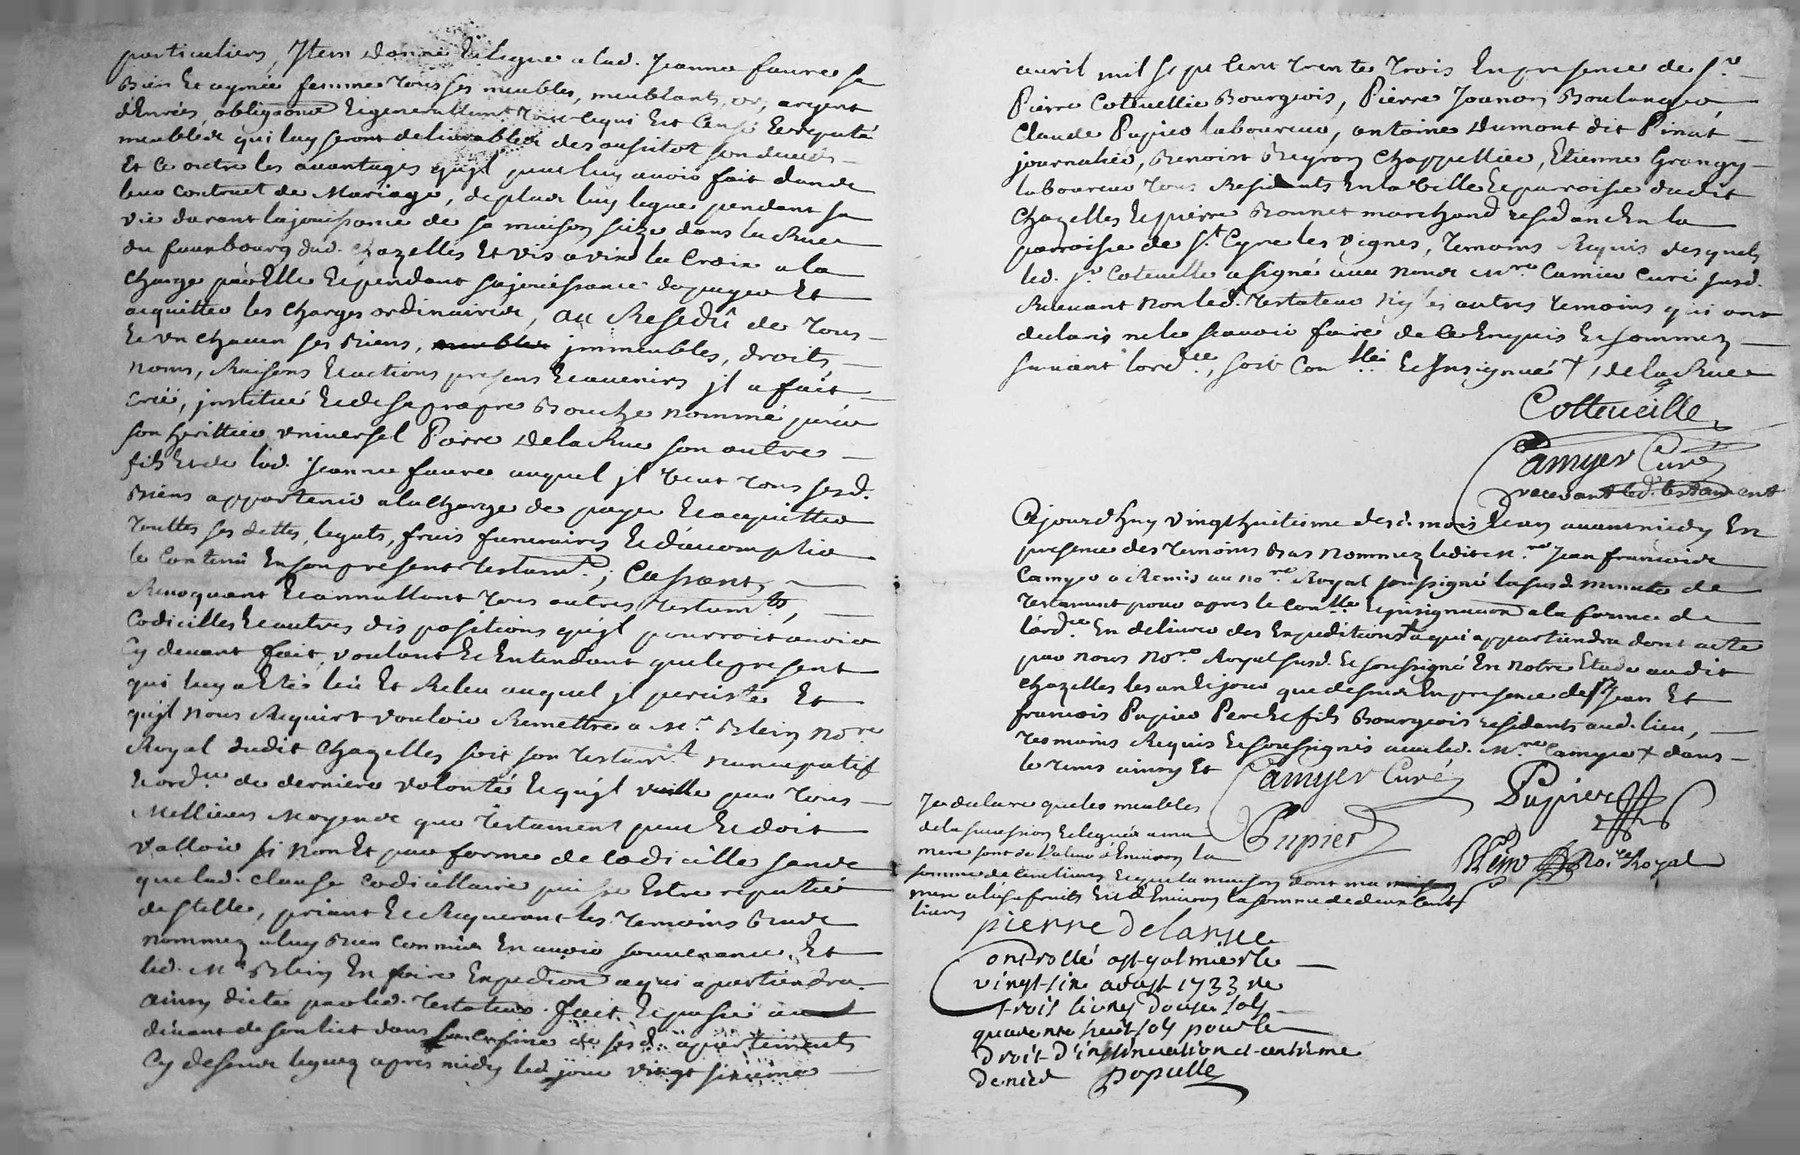 particuliers, Item donne & legue a lad. Jeanne faure sa
Bien & aymée femme tous ses meubles, meublants, or, argent
denrées, obliga͠ons & generallem.t tout ce qui Est Censé & reputé
meubles qui luy seront delivrables des aussitot son deces
Et ce outre les avantages qu'il peut luy avoir fait dans
leur contract de Mariage, de plus luy legue pendant sa
vie durant la jouissance de sa maison size dans la Rue
du fauxbourg dud. Chazelles Et vis a vis la Croix a la
charge par Elle & pendant sa jouissance de payer Et
acquitter les charges ordinaires, au Residû de tous
& un chacun ses Biens, meubles immeubles, droits,
noms, Raisons & actions presens & avenirs il a fait
créé, institué & de sa propre Bouche nommé
son herittier universel Pierre Delarue son autre
fils Et de lad. Jeanne faure auquel il veut tous sesd.
Biens appartenir a la charge de payer & acquitter
touttes ses dettes, legats, frais funeraires & d'accomplir
le contenu En son présent testam.t, Cassant,
Revoquant & annullant tous autres testam.ts,
Codicilles & autres dispositions qu'il pourroit avoir
Cy devant fait, voulant & Entendant que le present
qui luy a Eté leu Et Releu auquel il persiste Et
qu'il nous Requiert vouloir Remettre a M.r Blein no.re
Royal dudit Chazelles soit son testam.t nuncupatif
& ord.re de derniere volonté & qu'il vaille par tous
Meilleurs Moyens que testament peut & doit
valloir si non Et par forme de codicille sans
que lad. clause codicillaire puisse Estre reputée
de stille, priant & Requerant les temoins
nommez a luy Bien connus En avoir souvenance, Et
led. M.e Blein En faire Expedi͠on a qui apartiendra.
ainsy dicté par led. testateur. fait & passé au
devant de son lict dans de sesd. appartements
Cy dessus leguez apres midy led. jour vingt sixième
avril mil sept cent trente trois En presence de S.r
Pierre Coteuellie Bourgeois, Pierre Jounon Boulanger
Claude Pupier laboureur, antoine Dumont dit Pinat
journalier, Benoist Beyron Chappellier, Etienne Grangy
laboureur tous Residants En la Ville & parroisse dudit
Chazelles & pierre Bonnet marchand residan En la
parroisse de S.t Cyre les vignes, temoins Requis desquels
led. S.r Coteuille a signé avec nous M.re Camier Curé susd.
Recevant non led. testateur ny les autres temoins qui ont
declaré ne le scavoir faire de ce Enquis & sommez
suivant lord.ce, soit Con.llé & Insignué †, de la Rue
Cotteueille
Camyer Curé
recevant led. testament
Cejourdhuy vingt huitieme desd. mois & an avant midy En
presence des temoins Bas nommez ledit M.re Jean francois
Camyer a Remis au no.re Royal soussigné la susd. minute de
testament pour apres le Con.lle & insignuaon a la forme de
lord.ce En delivrer des Expeditions a qui appartiendra dont acte
par nous No.re Royal susd. & soussigné En notre Etude audit
Chazelles les an & jour que dessus En presence de S.rs Jean Et
francois Pupier Pere & fils Bourgeois residants aud. lieu,
tesmoins Requis & soussignés avec led. M.re Camyer † dans
le tems ainsy Et Camyer Curé
Pupier
Pupier
Blein No.re Royal
Je declare que les meubles
de la succession & legués a ma
mere sont de Valeur d'Environ la
somme de cent livres & que la maison dont ma
mere a lésufruits Est d'Environ la somme de deux cents
livres
pierre delarue
Controllé a st galmier le
vingt six aoust 1733 re
trois livres douze sols
quarente huit sols pour le
droit d'insinuation et centieme
denier Populle